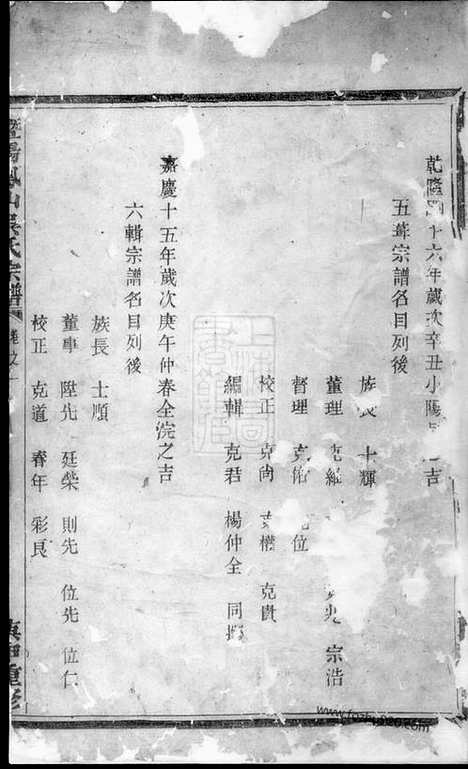 乾隆四十六年歲次辛丑小陽 吉
五葺宗譜名目列後
族長 士輝
董理 克繩 宗浩
督理 克佑 位
校正 克尚 克權 克貴
編輯 克君 楊仲全 同
嘉慶十五年歲次庚午仲春全浣之吉
六輯宗譜名目列後
族長 士順
董事 陞先 廷榮 則先 位先 位仁
校正 克道 春年 彩良
暨陽鳳山吳氏宗譜 卷之一
重修
上海圖書館藏